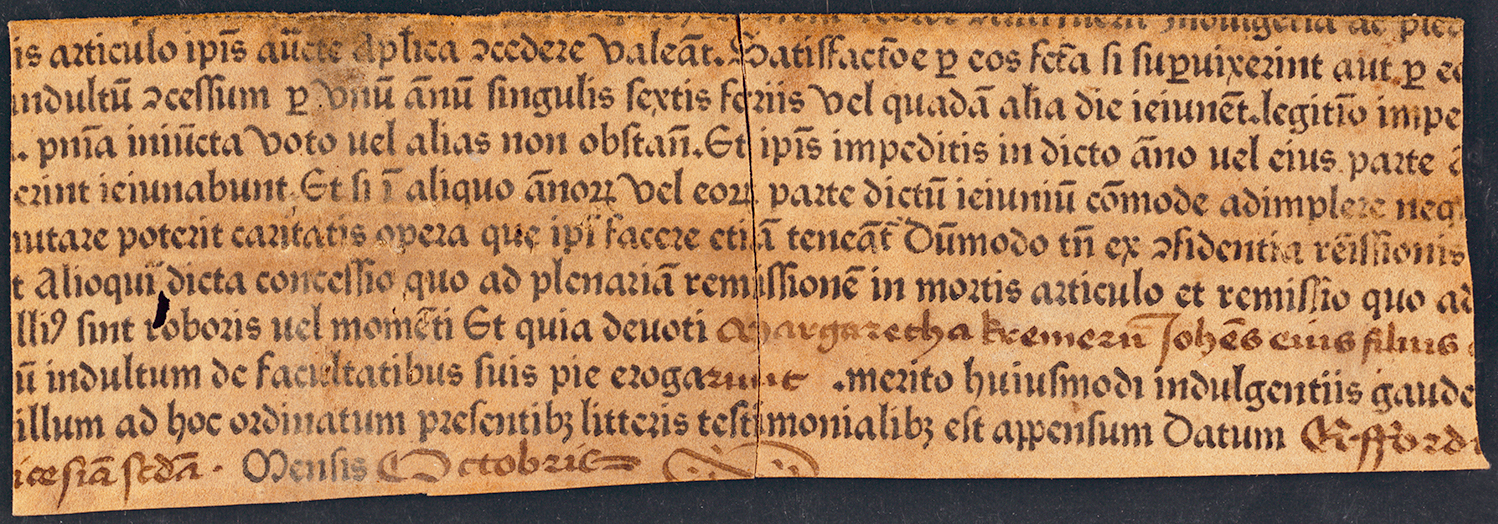 indulgentia ac
is articulo ipīs auc̄te apl̄ica ꝯcedere valeāt. Satisfactōe ꝑ eos fct̄a si suꝑuixerint aut ꝑ eo
indultū ꝯcessum ꝑ vnū ānū singulis sextis feriis vel quadā alia die ieiunēt. legitīo impe
pnīa iniūcta voto uel alias non obstan̄. Et ipīs impeditis in dicto āno uel eius parte
erint ieiunabunt. Et si ī aliquo ānoꝝ vel eoꝝ parte dictū ieiuniū cōmode adimplere neq
mutare poterit caritatis opera que ipī facere etiā teneāt Dūmodo tn̄ ex ꝯfidentia rēissionis
t Alioqui dicta concessio quo ad plenariā remissionē in mortis articulo et remissio quo ad
lliꝰ sint roboris uel momēti Et quia deuoti Margaretha kremerin̄ Johēs eius filius
ū indultum de facultatibus suis pie erogarunt .merito huiusmodi indulgentiis gaude
illum ad hoc ordinatum presentibꝫ litteris testimonialibꝫ est appensum Datum Erffordi
icesiā scd̄a · Mensis Octobris